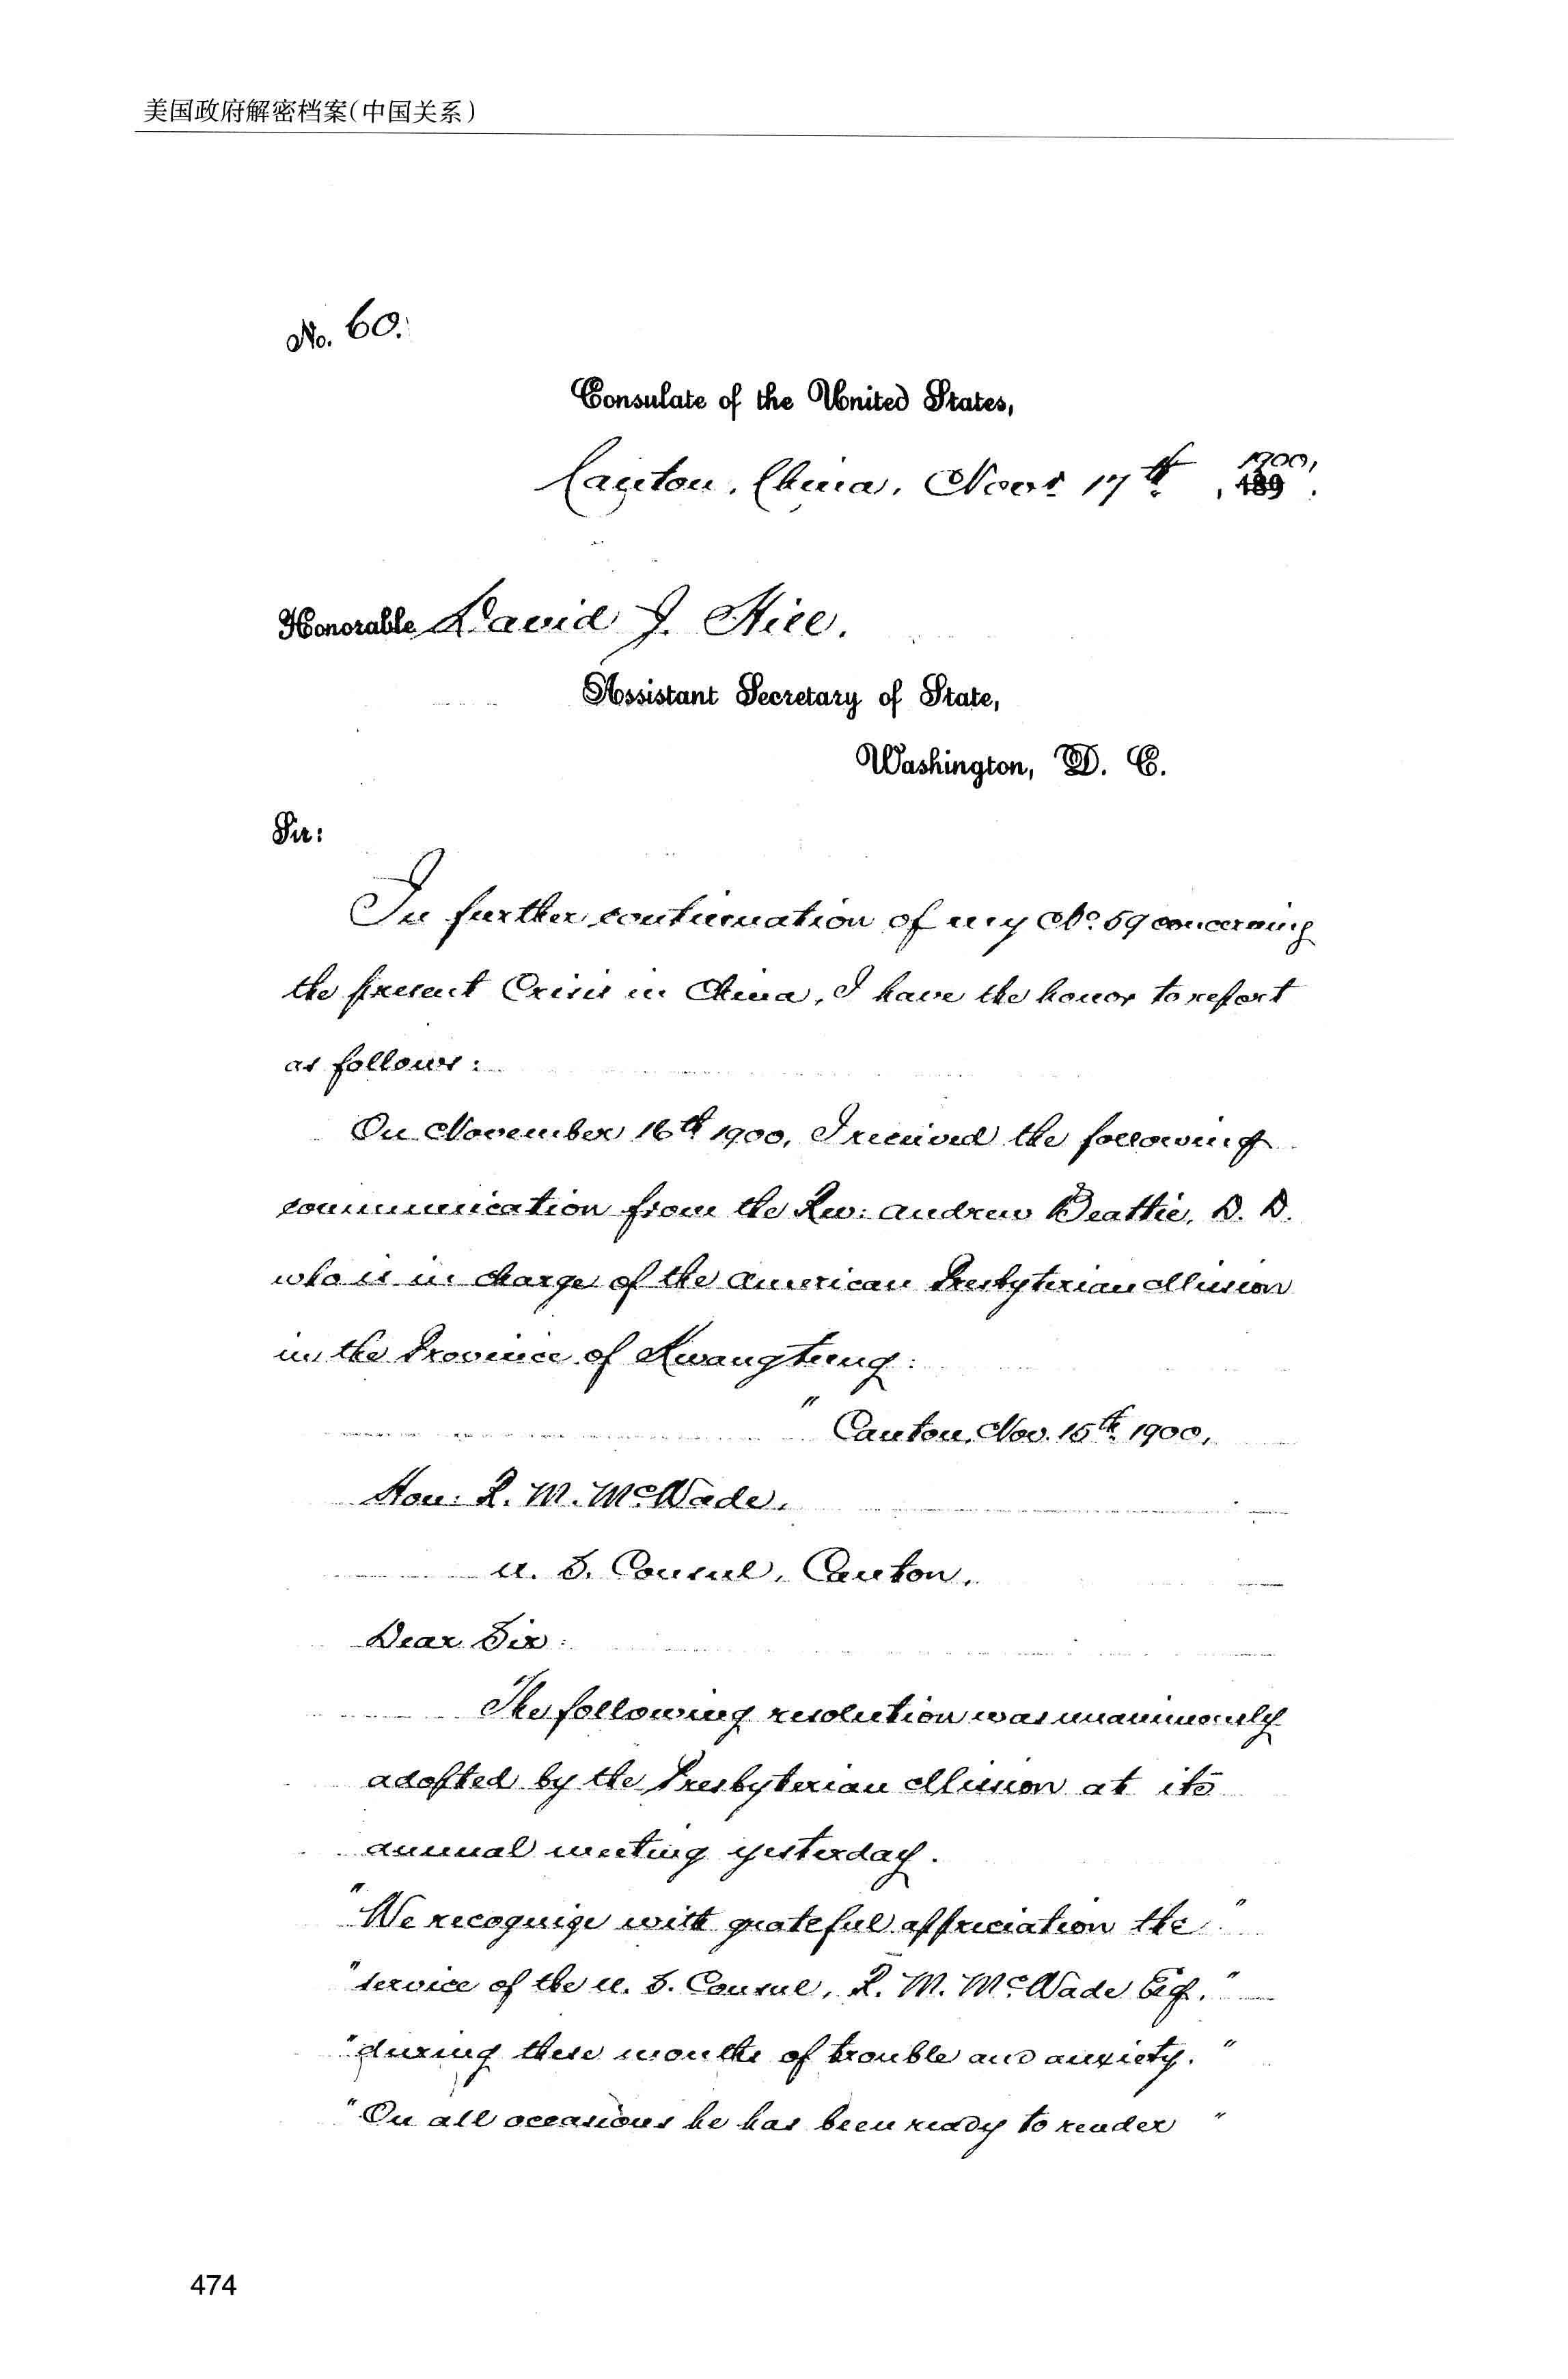 美国政府解密档案(中国关系)
No. 60.
Consulate of the United States,
Canton, China, Novr 17th, 1900,
189 .
Honorable David J. Hill.
Assistant Secretary of State,
Washington, D. C.
Sir:
In further continuation of my No. 59 concerning
the present Crisis in China, I have the honor to report
as follows:
On November 16th 1900, I received the following
communication from the Rev: Andrew Beattie, D. D.
who is in charge of the American Presbyterian Mission
in the Province of Kwangtung:
" Canton, Nov. 15th 1900,
Hon: R. M. McWade,
U. S. Consul, Canton,
Dear Sir:
The following resolution was unanimously
adopted by the Presbyterian Mission at its
annual meeting yesterday.
"We recognize with grateful appreciation the "
"service of the U. S. Consul, R. M. McWade Esq. "
"during these months of trouble and anxiety. "
"On all occasions he has been ready to render "
474